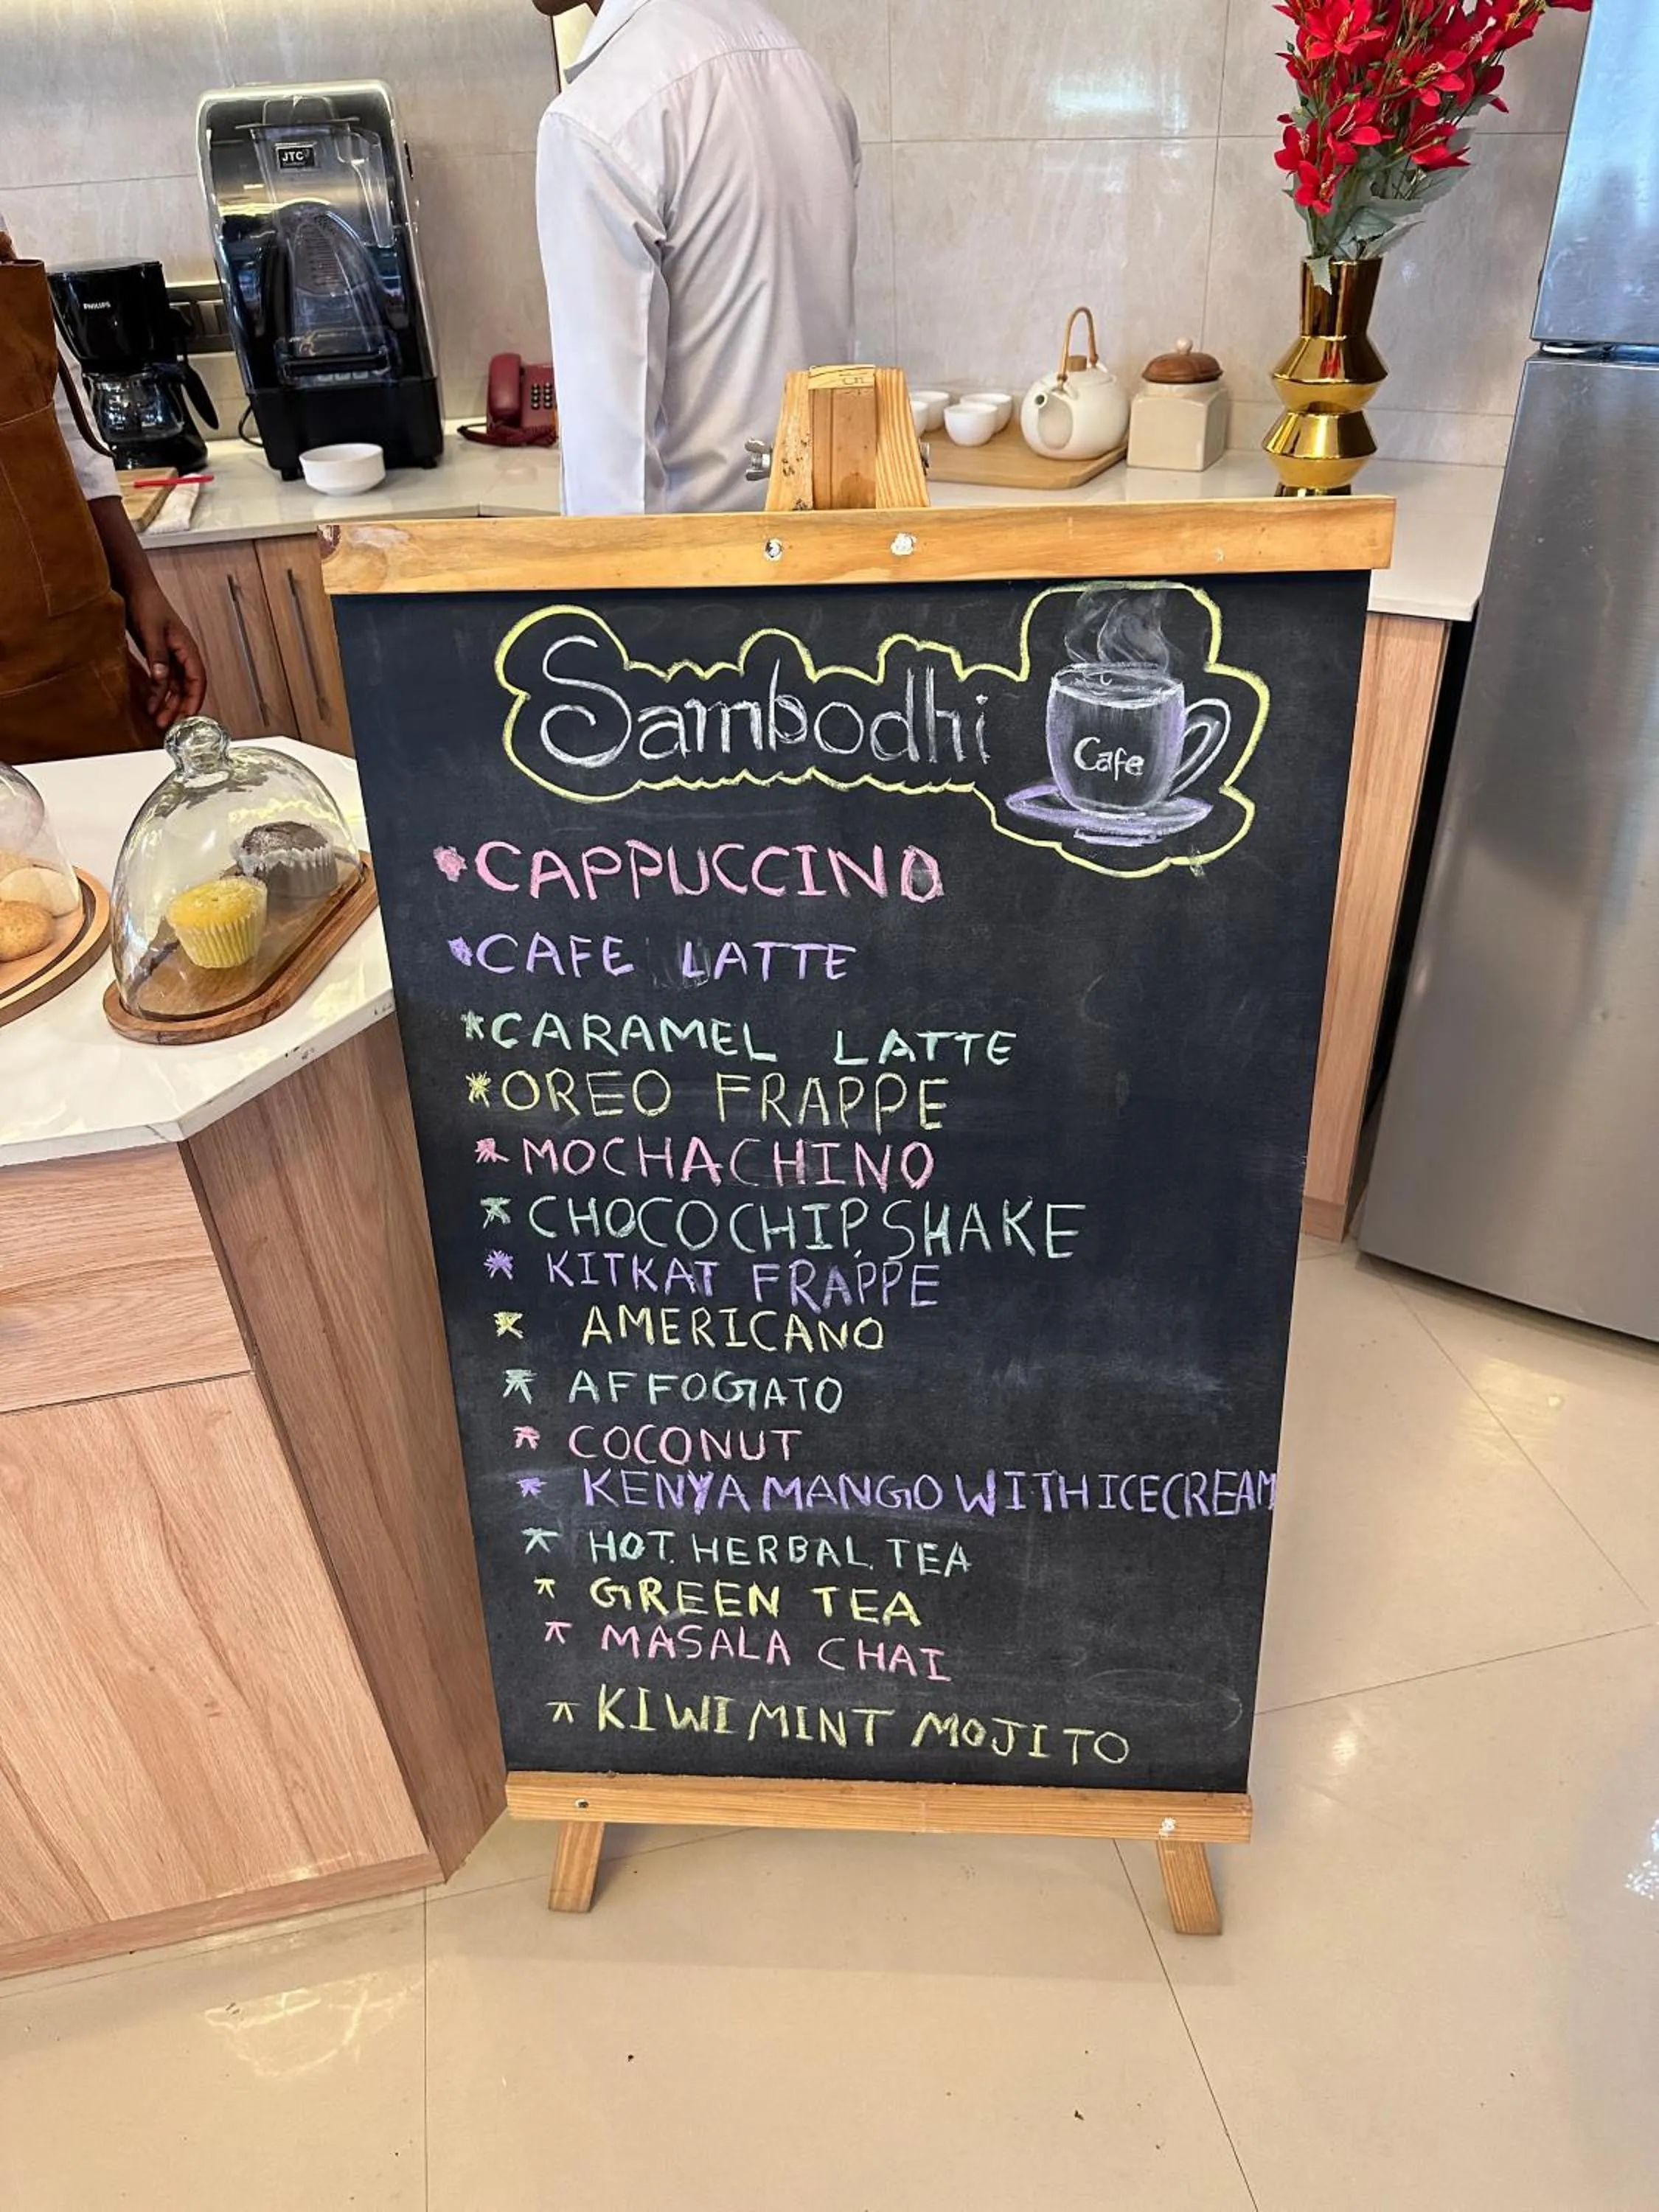 JTC
PHILIPS
Sambodhi
Cafe
CAPPUCCINO
CAFE LATTE
*CARAMEL LATTE
*OREO FRAPPE
* MOCHACHINO
* CHOCOCHIP.SHAKE
* KITKAT FRAPPE
* AMERICANO
* AFFOGATO
* COCONUT
* KENYA MANGO WITH ICECREAM
* HOT. HERBAL. TEA
* GREEN TEA
* MASALA CHAI
* KIWI MINT MOJITO